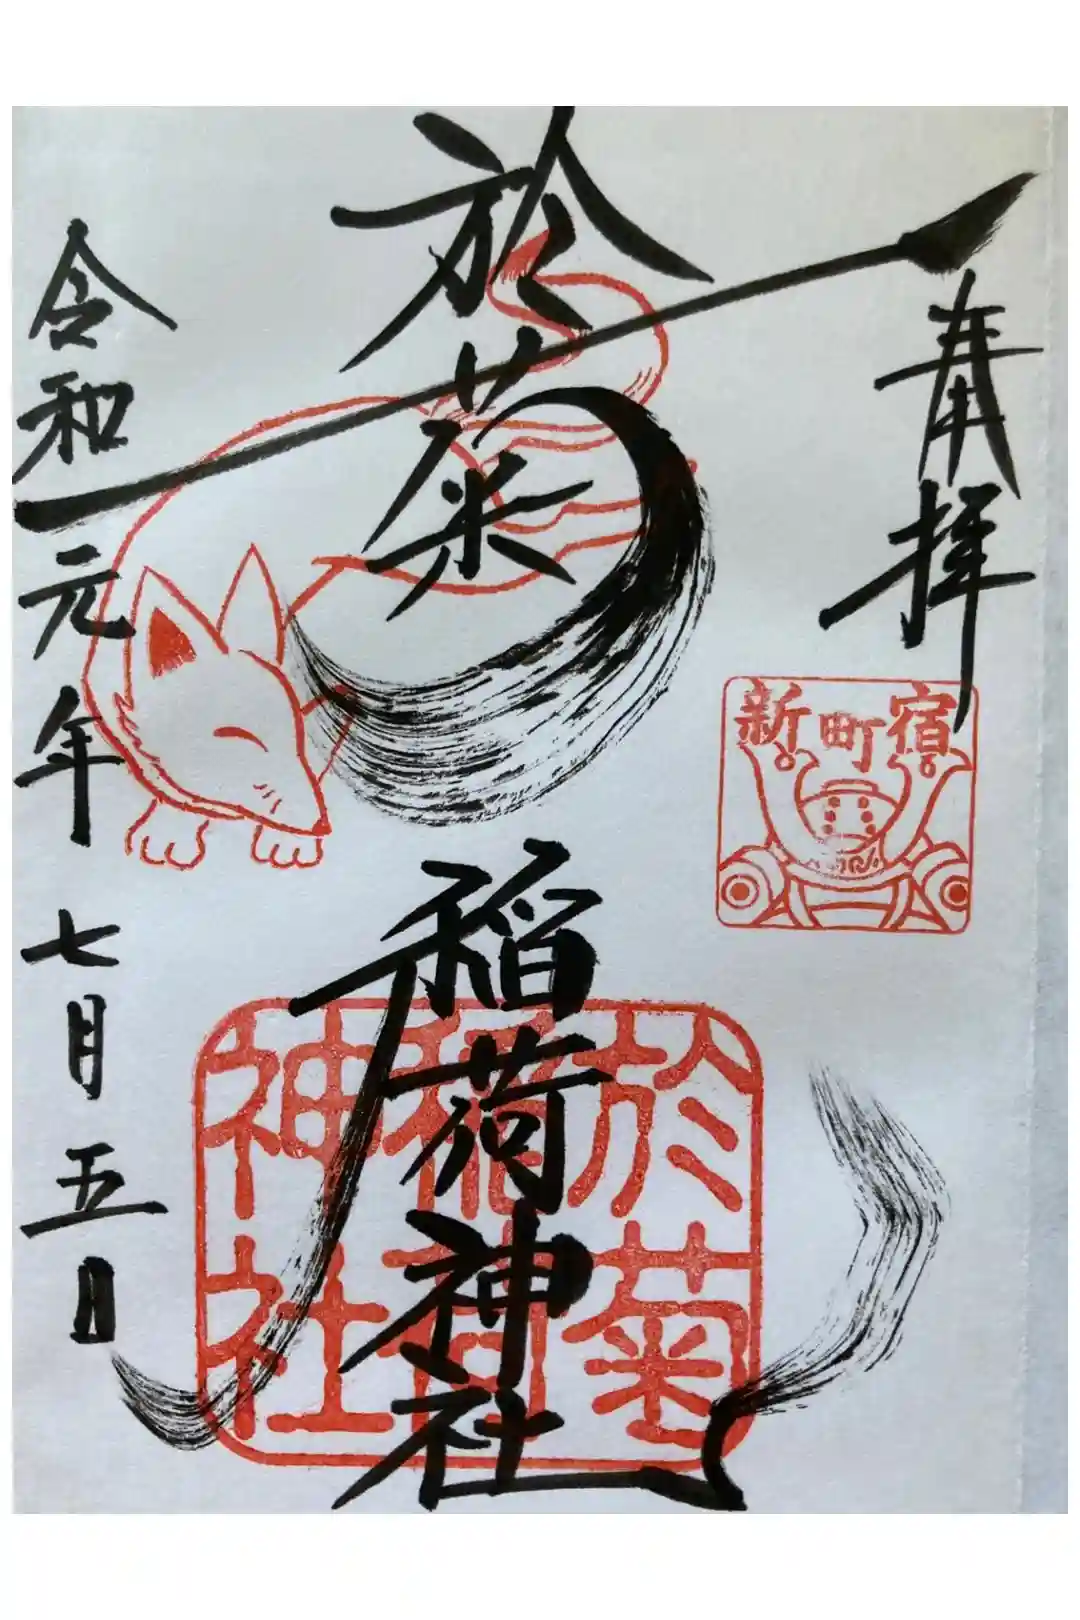 奉拝
新町宿
於菊
稲荷神社
於菊
稲荷
神社
令和元年七月五日